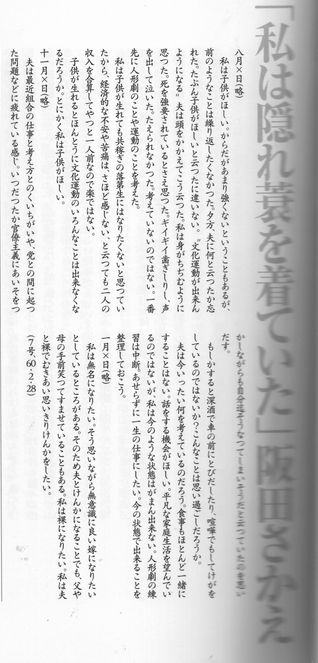 「私は隠れ蓑を着ていた」
さかえ
八月×日(略)
私は子供がほしい。からだがあまり強くないということもあるが、
前のようなことは繰り返したくなかった。夕方、夫に何と云つたか忘
れた。たぶん子供がほしいと云つたに違いない。"文化運動が出来ん
ようになる。"夫は頭をかかえてこう云つた。私は身がちぢむように
思つた。死を強要されているとさえ思つた。ギイギイ歯ぎしりし、声
を出して泣いた。たえられなかつた。考えていないのではない。一番
先に人形劇のことや運動のことを考えた。
私は子供が生れても共稼ぎの落第生にはなりたくないと思つてい
たから、経済的な不安や苦痛は、さほど感じない、と云つても二人の
収入を合算してやつと一人前なので楽ではない。
子供が生れるとほんとうに文化運動のいろんなことは出来なくな
るだろうか。とにかく私は子供がほしい。
十一月×日(略)
夫は最近組合の仕事と考え方とのくいちがいや、党との間に起つ
た問題などに疲れている感じ。いつだつたか官僚主義にあいそをつ
かしながらも自分迄そうなつてしまいそうだと云つていたのを思い
だす。
もしかすると深酒で車の前にとびだしたり、喧嘩でもしてけがを
しているのではないか?こんなことは思い過ごしだろうか。
夫は今いつたい何を考えているのだろう。食事もほとんど一緒に
することはない。話をする機会がほしい。平凡な家庭生活を望んでい
るのではないが、私は今のような状態はがまん出来ない。人形劇の練
習は中断、あせらずに一生の仕事にしたい。今の状態で出来ることを
整理しておこう。
一月×日(略)
私は無名になりたい。そう思いながら無意識に良い嫁になりたい
としているところがある。そのため夫とけんかになることでも、父や
母の手前笑つてすませていることもある。私は裸になりたい。私は夫
と裸でむきあい思いきりけんかをしたい。
(7号、60・2・28)